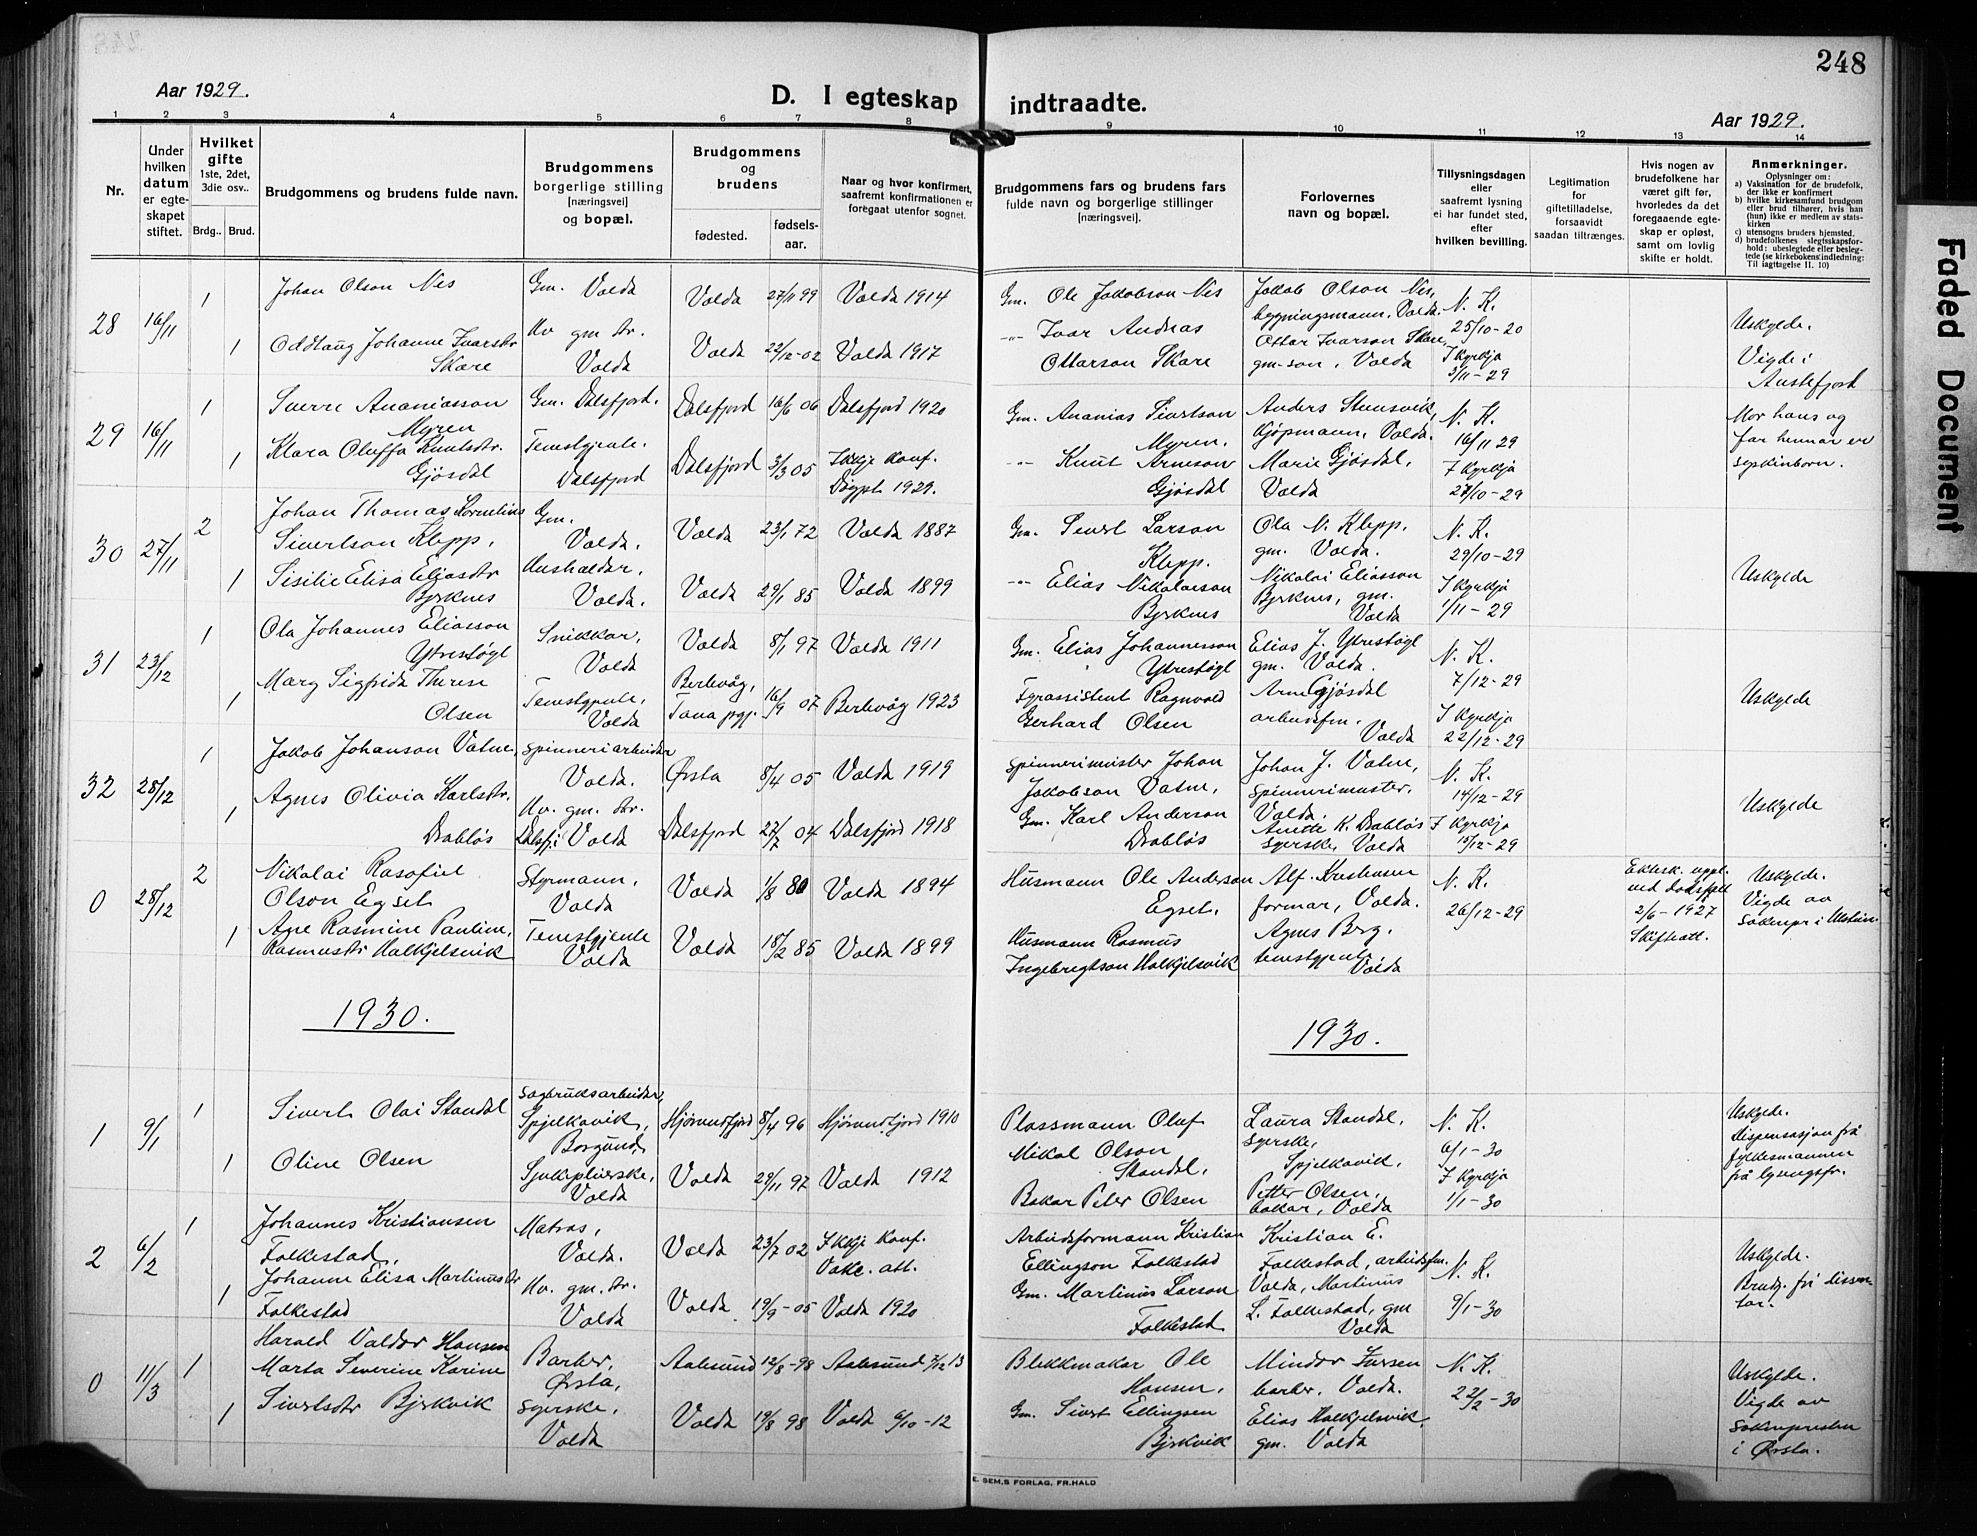 248
Aar 1929.
D. I egteskap indtraadte.
Aar 1929.
1 2 3 4 5 6 7 8 9 10 11 12 13 14
Nr.
Under hvilken datum er egte-skapet stiftet.
Hvilket gifte 1ste, 2det, 3die osv..
Brdg.. Brud.
Brudgommens og brudens fulde navn.
Brudgommens borgerlige stilling [næringsvei] og bopæl.
Brudgommens og brudens
fødested.
fødsels-aar.
Naar og hvor konfirmert, saafremt konfirmationen er foregaat utenfor sognet.
Brudgommens fars og brudens fars fulde navn og borgerlige stillinger [næringsvei].
Forlovernes navn og bopæl.
Tillysningsdagen eller saafremt lysning ei har fundet sted, efter hvilken bevilling.
Legitimation for giftetilladelse, forsaavidt saadan tiltrænges.
Hvis nogen av brudefolkene har været gift før, hvorledes da det foregaaende egte-skap er opløst, samt om lovlig skifte er holdt.
Anmerkninger.
Oplysninger om:
a) Vaksination for de brudefolk, der ikke er konfirmert
b) hvilke kirkesamfund brudgom eller brud tilhører, hvis han (hun) ikke er medlem av stats-kirken
c) utensogns bruders hjemsted.
d) brudefolkenes slegtsskapsfor-hold: ubeslegtede eller besleg-tede (se kirkebokens indledning: Til iagttagelse II. 10)
28 16/11 1 Johan Olson Nes Gm. Volda Volda 27/11 99 Volda 1914 Gm. Ole Jakobson Nes Jakob Olson Nes, bygningsmann, Volda. N. K. 25/10-20 Uskylde.
1 Oddlaug Johanne Ivarsdtr Skare Hv gm dtr. Volda Volda 22/12-02 Volda 1917 -"- Ivar Andreas Ottarson Skare Ottar Ivarson Skare, gm-son, Volda I Kyrkja 3/11-29 Vigde i Austefjord
29 16/11 1 Sverre Ananiasson Myren Gm. Dalsfjord. Dalsfjord 16/6 06 Dalsfjord 1920 Gm. Ananias Sivertson Myren. Anders Steinsvik, kjøpmann, Volda. N. K. 16/11 29 Mor hans og far hennar er syskinborn.
1 Klara Oluffa Knutsdtr. Gjøsdal Tenestgjente. Dalsfjord Dalsfjord 3/3 05 Ikkje konf. Døypt 1929. -"- Knut Arneson Gjøsdal Marie Gjøsdal, Volda I Kyrkja 27/10-29
30 27/11 2 Johan Thomas Kornelius Sivertson Klepp. Gm. Volda. Volda 23/1 72 Volda 1887 Gm. Sivert Larson Klepp. Ola N. Klepp. gm. Volda. N. K. 29/10-29 Uskylde
1 Sisilie Elisa Eliasdtr Bjrknes Hushaldar, Volda. Volda 29/1 85 Volda 1899 -"- Elias Nikolaison Bjrknes Nikolai Eliasson Bjrknes, gm. Volda I Kyrkja 1/11-29
31 23/12 1 Ola Johannes Eliasson Ytrestøyl Snikkar, Volda Volda 8/1 97 Volda 1911 Gm. Elias Johannesson Ytrestøyl Elias J. Ytrestøyl gm. Volda. N. K. 7/12-29 Uskylde
1 Marg Sigfrida Therese Olsen Tenestgjente, Volda Berlevåg, Tana prgj. 16/9 07 Berlevåg 1923 Fyrassistent Ragnvald Gerhard Olsen Arne Gjøsdal arbeidsfm. Volda I Kyrkja 22/12-29
32 28/12 1 Jakob Johanson Vatne, Spinneriarbeidar Volda. Ørsta 8/4 05 Volda 1919 Spinnerimeister Johan Jakobson Vatne, Johan J. Vatne, spinnerimeister, Volda N. K. 14/12-29 Uskylde
1 Agnes Olivia Karlsdtr. Drabløs Hv. gm. dtr. Dalsfj. i Volda Dalsfjord 27/7 04 Dalsfjord 1918 Gm. Karl Anderson Drabløs Anette K. Drabløs syerske, Volda I Kyrkja 15/12-29
0 28/12 2 Nikolai Rasofiel Olson Egset Styrmann, Volda Volda 1/8 80 Volda 1894 Husmann Ole Anderson Egset. Alf. Kristiansen formar, Volda. N. K. 26/12-29 Ektesk. uppl. ved dødsfall 2/6-1927 Skifteatt. Uskylde. Vigde av soknepr i Ulstein
1 Ane Rasmine Pauline, Rasmusdtr Halkjelsvik Tenestgjente Volda Volda 18/2 85 Volda 1899 Husmann Rasmus Ingebregtson Halkjelsvik Agnes Berg. tenestgjente Volda
1930.
1930.
1 9/1 1 Sivert Olai Standal Sagbruksarbeidar, Spjelkavik, Borgund Hjørundfjord 8/4 96 Hjørundfjord 1910 Plassmann Oluf Mikal Olson Standal, Laura Standal, syerske, Spjelkavik, N. K. 6/1-30 Uskylde. Dispensasjon frå fylkesmannen frå lysingsfr.
1 Oline Olsen Sjukepleierske, Volda Volda 28/11 97 Volda 1912 Bakar Peter Olsen Petter Olsen, bakar, Volda I Kyrkja 1/1-30
2 6/2 1 Johannes Kristiansen Folkestad, Matros, Volda. Volda 23/7 02 Ikkje konf. Vake. att. Arbeidsformann Kristian Ellingson Folkestad Kristian E. Folkestad, arbeidsfm. Volda, N. K. 9/1-30 Uskylde. Brudg. frå dissentar.
1 Johanne Elisa Martinusdtr Folkestad Hv. gm. dtr. Volda Volda 19/9-05 Volda 1920 Gm. Martinus Larson Folkestad Martinus L. Folkestad, gm Volda
0 11/3 1 Harald Valdor Hansen Barber, Ørsta, Aalesund 12/8-98 Aalesund 7/12 13 Blikkmakar Ole Hansen, Mindor Iversen barber, Volda. N. K. 22/2-30 Uskylde. Vigde av soknepresten i Ørsta.
1 Marta Severine Karine Sivertsdtr Bjrkvik syerske, Volda Volda 19/8 98 Volda 6/10-12 Gm. Sivert Ellingsen Bjrkvik Elias Halkjelsvik, gm. Volda
E. SEM,S FORLAG, FR.HALD
Faded Document